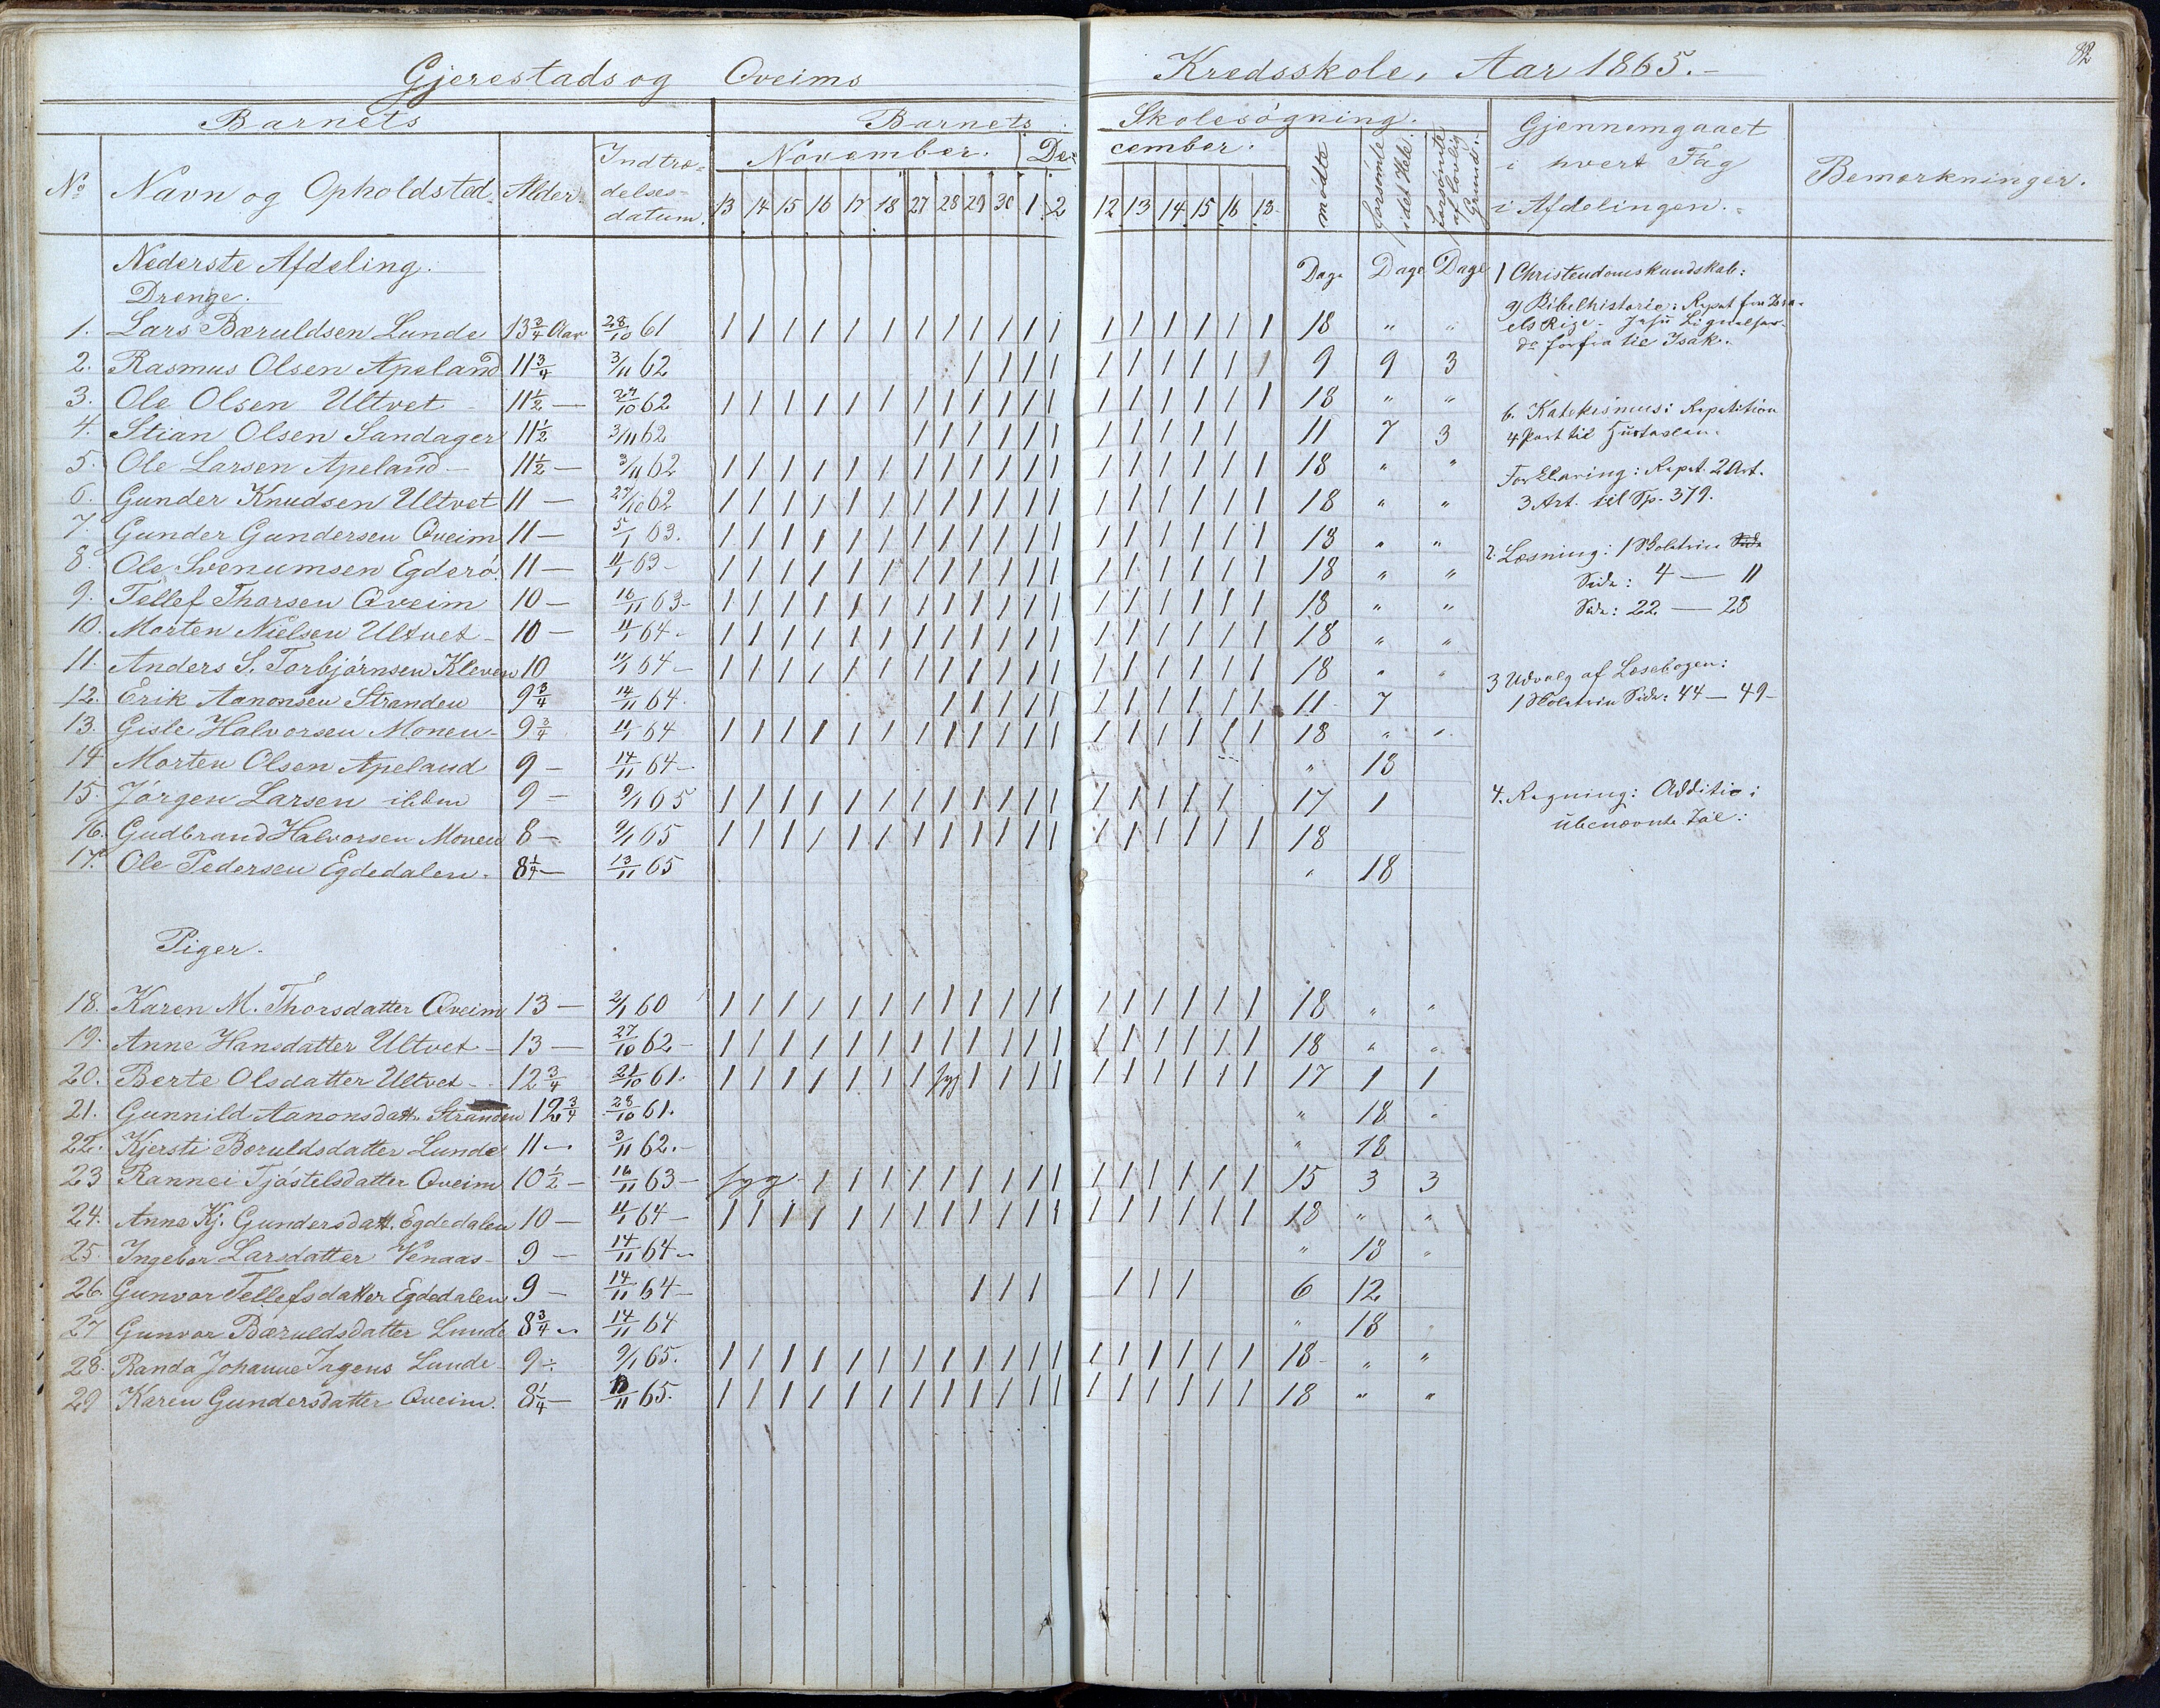 82
Gjerestads og Qveims Kredsskole, Aar 1865.-
Barnets Barnets Skolesøgning. Gjennemgaaet i hvert Fag i Afdelingen. Bemærkninger.
No Navn og Opholdsted. Alder. Indtrædelsesdatum. November. December. mødte forsømte i det Hele. forsømte af lovlig Grund.
13 14 15 16 17 18 27 28 29 30 1 2 12 13 14 15 16 18
Nederste Afdeling. Dage Dage Dage
Drenge.
1. Lars Bæruldsen Lunde 13 3/4 Aar 28/10 61 | | | | | | | | | | | | | | | | | | 18 " "
2. Rasmus Olsen Apeland 11 3/4 3/11 62 | | | | | | | | | | 9 9 3
3. Ole Olsen Ultvet - 11 1/2 — 27/10 62 | | | | | | | | | | | | | | | | | | 18 " "
4. Stian Olsen Sandager 11 1/2 3/11 62 | | | | | | | | | | | 11 7 3
5. Ole Larsen Apeland - 11 1/2 — 3/11 62 | | | | | | | | | | | | | | | | | | 18 " "
6. Gunder Knudsen Ultvet 11 — 27/10 62 | | | | | | | | | | | | | | | | | | 18 " "
7. Gunder Gundersen Qveim 11 — 5/1 63. | | | | | | | | | | | | | | | | | | 18 " "
8. Ole Svenumsen Egderø. 11 — 11/1 63 - | | | | | | | | | | | | | | | | | | 18 " "
9. Tellef Thorsen Qveim 10 — 16/11 63 - | | | | | | | | | | | | | | | | | | 18 " "
10. Morten Nielsen Ultvet - 10 — 11/1 64 - | | | | | | | | | | | | | | | | | | 18 " "
11. Anders S. Torbjørnsen Kleven 10 11/1 64 - | | | | | | | | | | | | | | | | | | 18 " "
12. Erik Aanonsen Stranden 9 3/4 14/11 64. | | | | | | | | | | | 11 7
13. Gisle Halvorsen Monen - 9 3/4 11/1 64 | | | | | | | | | | | | | | | | | | 18 " "
14 Morten Olsen Apeland 9 — 14/11 64 - " 18
15. Jørgen Larsen ibidem 9 — 9/1 65 | | | | | | | | | | | | | | | | | 17 1
16. Gudbrand Halvorsen Monen 8 — 9/1 65 | | | | | | | | | | | | | | | | | | 18
17. Ole Pedersen Egdedalen. 8 1/4 — 13/11 65 " 18
Piger.
18. Karen M. Thorsdatter Qveim 13 — 2/1 60 | | | | | | | | | | | | | | | | | | 18 " "
19. Anne Hansdatter Ultvet - 13 — 27/10 62 - | | | | | | | | | | | | | | | | | | 18 " "
20. Berte Olsdatter Ultvet - 12 3/4 21/10 61. | | | | | | | syg | | | | | | | | | | 17 1 1
21. Gunnild Aanonsdatt. Stranden 12 3/4 28/10 61. " 18 "
22. Kjersti Beruldsdatter Lunde 11 — 3/11 62. - " 18
23 Rannei Tjøstelsdatter Qveim 10 1/2 - 16/11 63 - syg - | | | | | | | | | | | | | | | 15 3 3
24. Anne Kj. Gundersdatt. Egdedalen 10 — 11/1 64 — | | | | | | | | | | | | | | | | | | 18 " "
25. Ingebor Larsdatter Venaas - 9 — 14/11 64 - " 18 "
26. Gunvor Tellefsdatter Egdedalen 9 — 14/11 64 - | | | | | | 6 12
27 Gunvor Bæruldsdatter Lunde 8 3/4 - 14/11 64 " 18
28. Randa Johanne Ingens Lunde - 9 — 9/1 65. | | | | | | | | | | | | | | | | | | 18 - " "
29 Karen Gundersdatter Qveim. 8 1/4 — 13/11 65. | | | | | | | | | | | | | | | | | | 18 " "
1 Christendomskundskab:
a) Bibelhistorie: Repet. fra Isra-
els Rige - Jesu Lignelser.
do forfra til Isak.
b. Katekismus: Repetition
4 Part til Hustavlen.
Forklaring: Repet. 2 Art.
3 Art. til Sp. 379.
2. Læsning: 1 Skoletrin
Side: 4 — 11
Side: 22 — 28
3 Udvalg af Læsebogen:
1 Skoletrin Side: 44 — 49 -
4. Regning: Additio:
ubenævnte Tal: